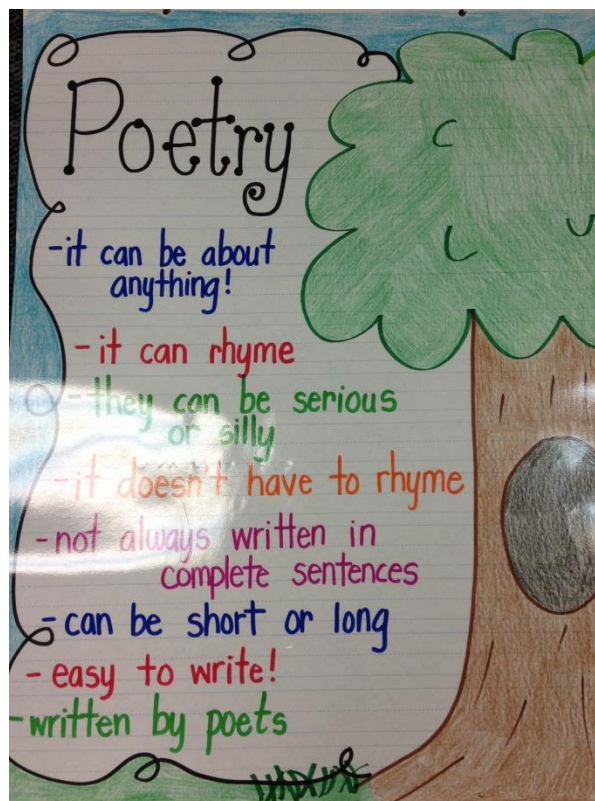 Poetry
-it can be about
anything!
-it can rhyme
-they can be serious
or silly
-it doesn't have to rhyme
-not always written in
complete sentences
-can be short or long
-easy to write!
-written by poets